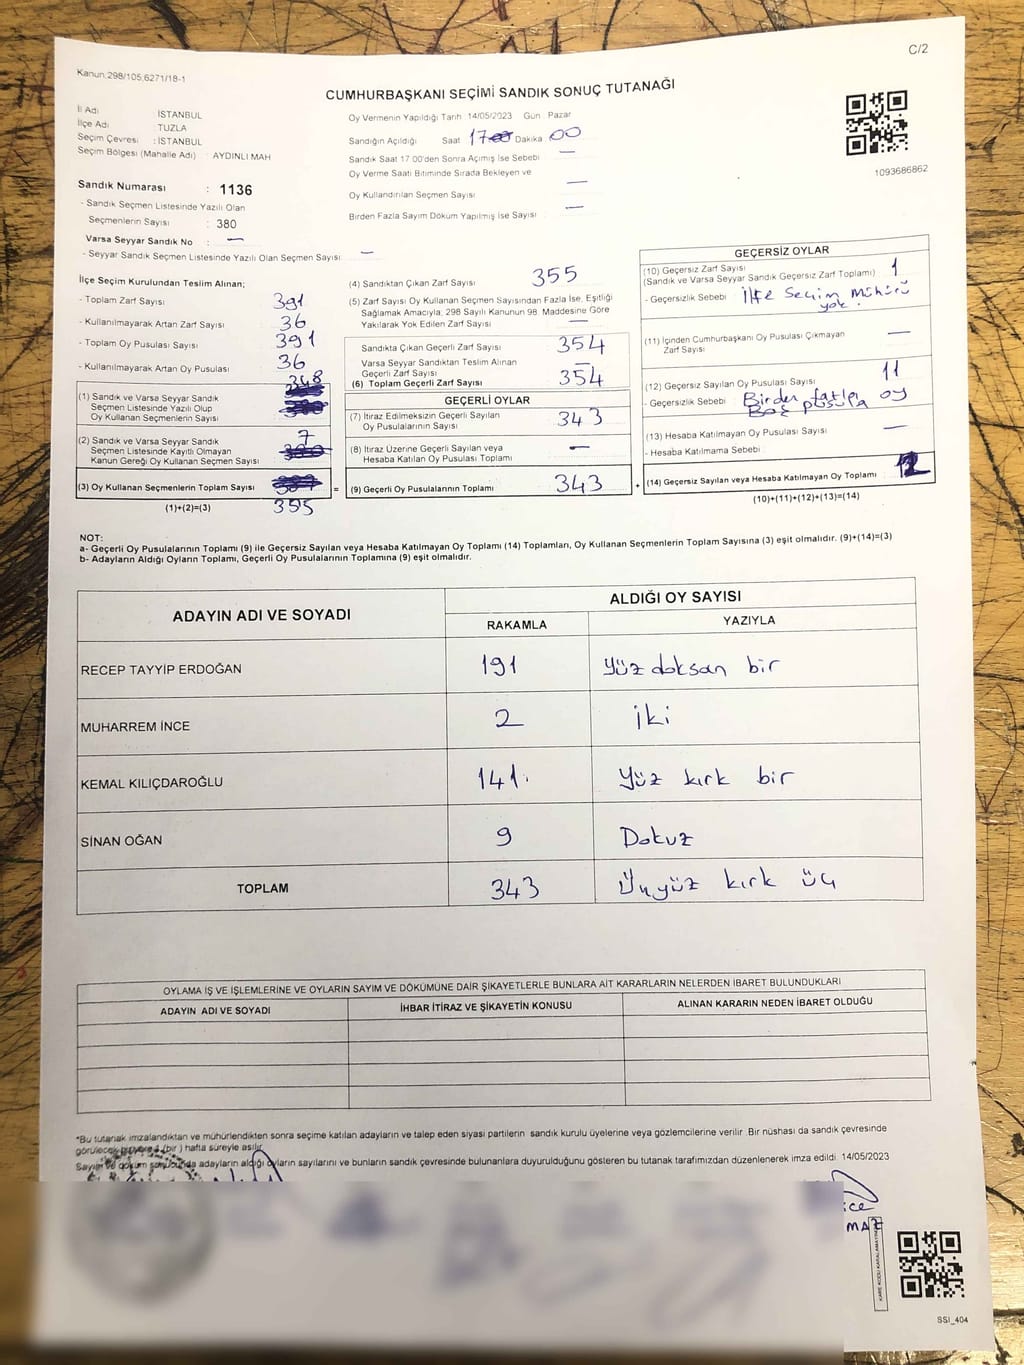 C/2
Kanun:298/105,6271/18-1
CUMHURBAŞKANI SEÇİMİ SANDIK SONUÇ TUTANAĞI
İl Adı : İSTANBUL
İlçe Adı : TUZLA
Seçim Çevresi : İSTANBUL
Seçim Bölgesi (Mahalle Adı) : AYDINLI MAH
Sandık Numarası : 1136
- Sandık Seçmen Listesinde Yazılı Olan
Seçmenlerin Sayısı : 380
Varsa Seyyar Sandık No : —
- Seyyar Sandık Seçmen Listesinde Yazılı Olan Seçmen Sayısı: —
Oy Vermenin Yapıldığı Tarih 14/05/2023 Gün : Pazar
Sandığın Açıldığı Saat 17 Dakika 00
Sandık Saat 17:00'den Sonra Açımış İse Sebebi —
Oy Verme Saati Bitiminde Sırada Bekleyen ve
Oy Kullandırılan Seçmen Sayısı : —
Birden Fazla Sayım Döküm Yapılmış İse Sayısı : —
1093686862
İlçe Seçim Kurulundan Teslim Alınan;
- Toplam Zarf Sayısı 391
- Kullanılmayarak Artan Zarf Sayısı 36
- Toplam Oy Pusulası Sayısı 391
- Kullanılmayarak Artan Oy Pusulası 36
348
(1) Sandık ve Varsa Seyyar Sandık
Seçmen Listesinde Yazılı Olup
Oy Kullanan Seçmenlerin Sayısı
(2) Sandık ve Varsa Seyyar Sandık 7
Seçmen Listesinde Kayıtlı Olmayan
Kanun Gereği Oy Kullanan Seçmen Sayısı
(3) Oy Kullanan Seçmenlerin Toplam Sayısı =
(1)+(2)=(3) 355
(4) Sandıktan Çıkan Zarf Sayısı 355
(5) Zarf Sayısı Oy Kullanan Seçmen Sayısından Fazla İse, Eşitliği
Sağlamak Amacıyla, 298 Sayılı Kanunun 98. Maddesine Göre
Yakılarak Yok Edilen Zarf Sayısı —
Sandıkta Çıkan Geçerli Zarf Sayısı 354
Varsa Seyyar Sandıktan Teslim Alınan
Geçerli Zarf Sayısı —
(6) Toplam Geçerli Zarf Sayısı 354
GEÇERLİ OYLAR
(7) İtiraz Edilmeksizin Geçerli Sayılan
Oy Pusulalarının Sayısı 343
(8) İtiraz Üzerine Geçerli Sayılan veya
Hesaba Katılan Oy Pusulası Toplamı —
(9) Geçerli Oy Pusulalarının Toplamı 343 +
GEÇERSİZ OYLAR
(10) Geçersiz Zarf Sayısı
(Sandık ve Varsa Seyyar Sandık Geçersiz Zarf Toplamı) 1
- Geçersizlik Sebebi : İlçe Seçim Mührü
yok.
(11) İçinden Cumhurbaşkanı Oy Pusulası Çıkmayan
Zarf Sayısı —
(12) Geçersiz Sayılan Oy Pusulası Sayısı 11
- Geçersizlik Sebebi : Birden fazla oy
Boş pusula
(13) Hesaba Katılmayan Oy Pusulası Sayısı —
- Hesaba Katılmama Sebebi :
(14) Geçersiz Sayılan veya Hesaba Katılmayan Oy Toplamı 12
(10)+(11)+(12)+(13)=(14)
NOT:
a- Geçerli Oy Pusulalarının Toplamı (9) ile Geçersiz Sayılan veya Hesaba Katılmayan Oy Toplamı (14) Toplamları, Oy Kullanan Seçmenlerin Toplam Sayısına (3) eşit olmalıdır. (9)+(14)=(3)
b- Adayların Aldığı Oyların Toplamı, Geçerli Oy Pusulalarının Toplamına (9) eşit olmalıdır.
ADAYIN ADI VE SOYADI
ALDIĞI OY SAYISI
RAKAMLA YAZIYLA
RECEP TAYYİP ERDOĞAN 191 Yüz doksan bir
MUHARREM İNCE 2 İki
KEMAL KILIÇDAROĞLU 141 Yüz kırk bir
SİNAN OĞAN 9 Dokuz
TOPLAM 343 Üçyüz kırk üç
OYLAMA İŞ VE İŞLEMLERİNE VE OYLARIN SAYIM VE DÖKÜMÜNE DAİR ŞİKAYETLERLE BUNLARA AİT KARARLARIN NELERDEN İBARET BULUNDUKLARI
ADAYIN ADI VE SOYADI İHBAR İTİRAZ VE ŞİKAYETİN KONUSU ALINAN KARARIN NEDEN İBARET OLDUĞU
*Bu tutanak imzalandıktan ve mühürlendikten sonra seçime katılan adayların ve talep eden siyasi partilerin sandık kurulu üyelerine veya gözlemcilerine verilir. Bir nüshası da sandık çevresinde
görülecek bir yere 1 (bir) hafta süreyle asılır.
Sayım ve döküm sonucunda adayların aldığı oyların sayılarını ve bunların sandık çevresinde bulunanlara duyurulduğunu gösteren bu tutanak tarafımızdan düzenlenerek imza edildi. 14/05/2023
KARE KODU KARALAMAYINIZ
SSI_404